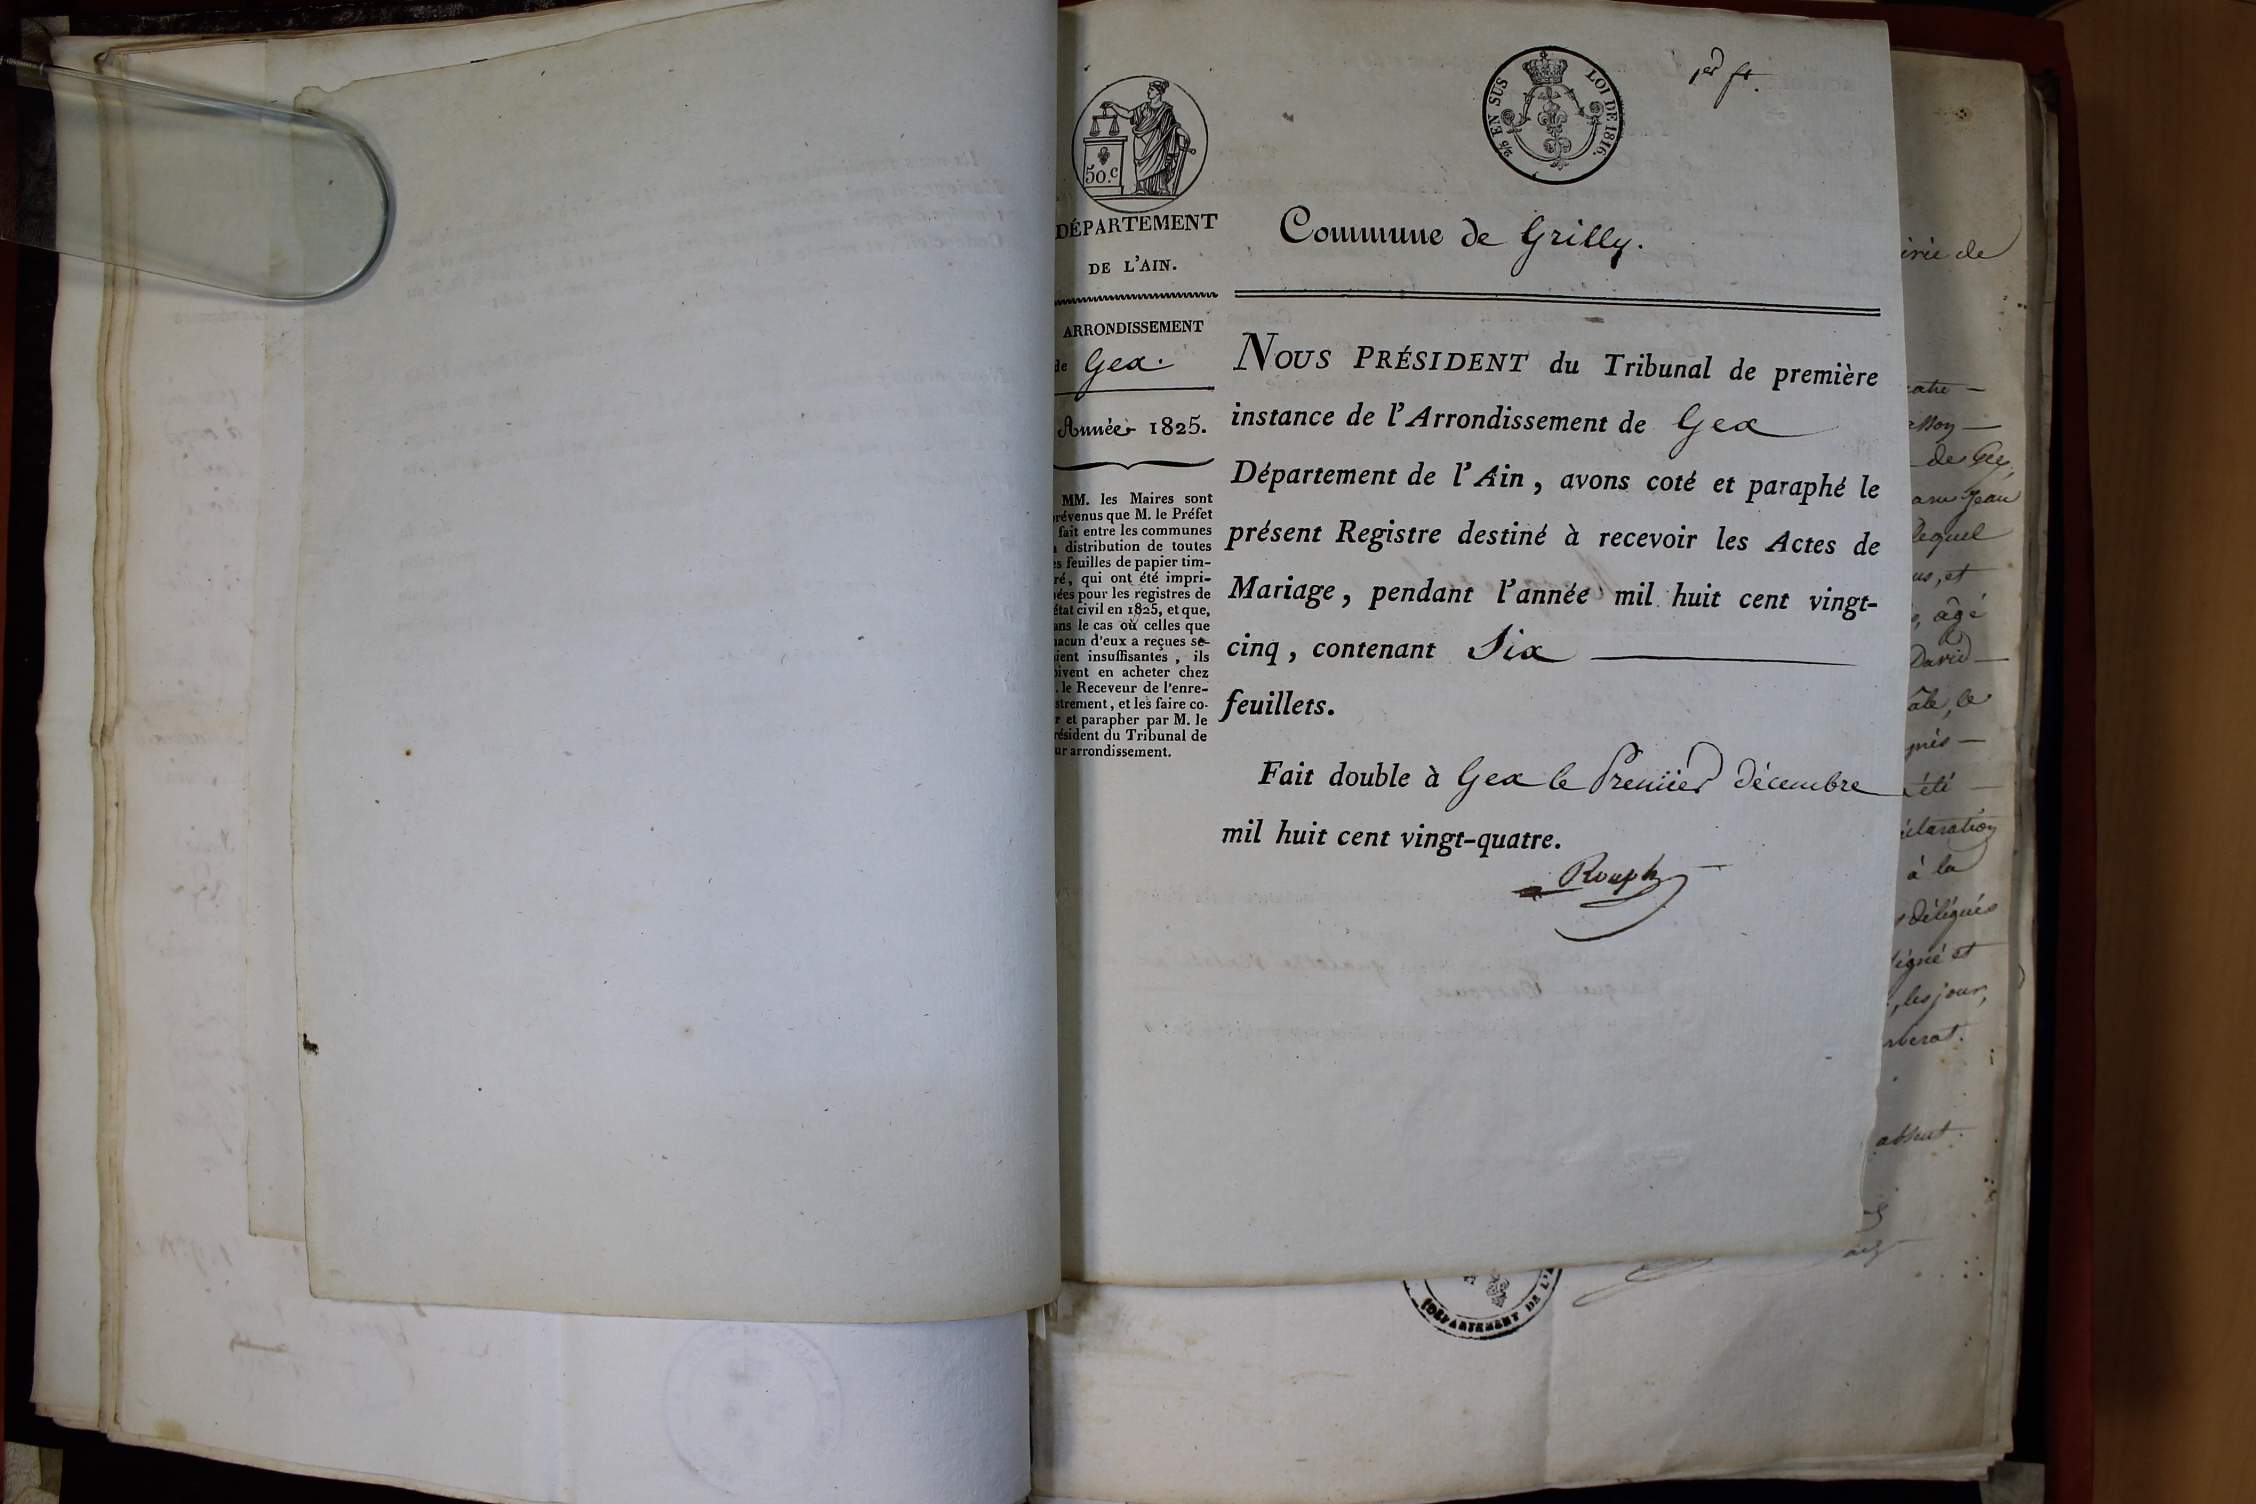 50.c
DÉPARTEMENT
DE L'AIN.
ARRONDISSEMENT
de Gex.
Année 1825.
MM. les Maires sont
prévenus que M. le Préfet
fait entre les communes
distribution de toutes
feuilles de papier tim-
ré, qui ont été impri-
ées pour les registres de
état civil en 1825, et que,
ans le cas où celles que
acun d'eux a reçues se-
ient insuffisantes, ils
oivent en acheter chez
. le Receveur de l'enre-
strement, et les faire co-
r et parapher par M. le
résident du Tribunal de
ur arrondissement.
2/5 EN SUS LOI DE 1816.
1er ft.
Commune de Grilly.
NOUS PRÉSIDENT du Tribunal de première
instance de l'Arrondissement de Gex
Département de l'Ain, avons coté et paraphé le
présent Registre destiné à recevoir les Actes de
Mariage, pendant l'année mil huit cent vingt-
cinq, contenant Six
feuillets.
Fait double à Gex le Premier décembre
mil huit cent vingt-quatre.
Rouph
irie de
de Gex,
Jean
lequel
us, et
, âgé
David
été
à la
délégués
igné et
, les jour,
absent.
DÉPARTEMENT DE L'A